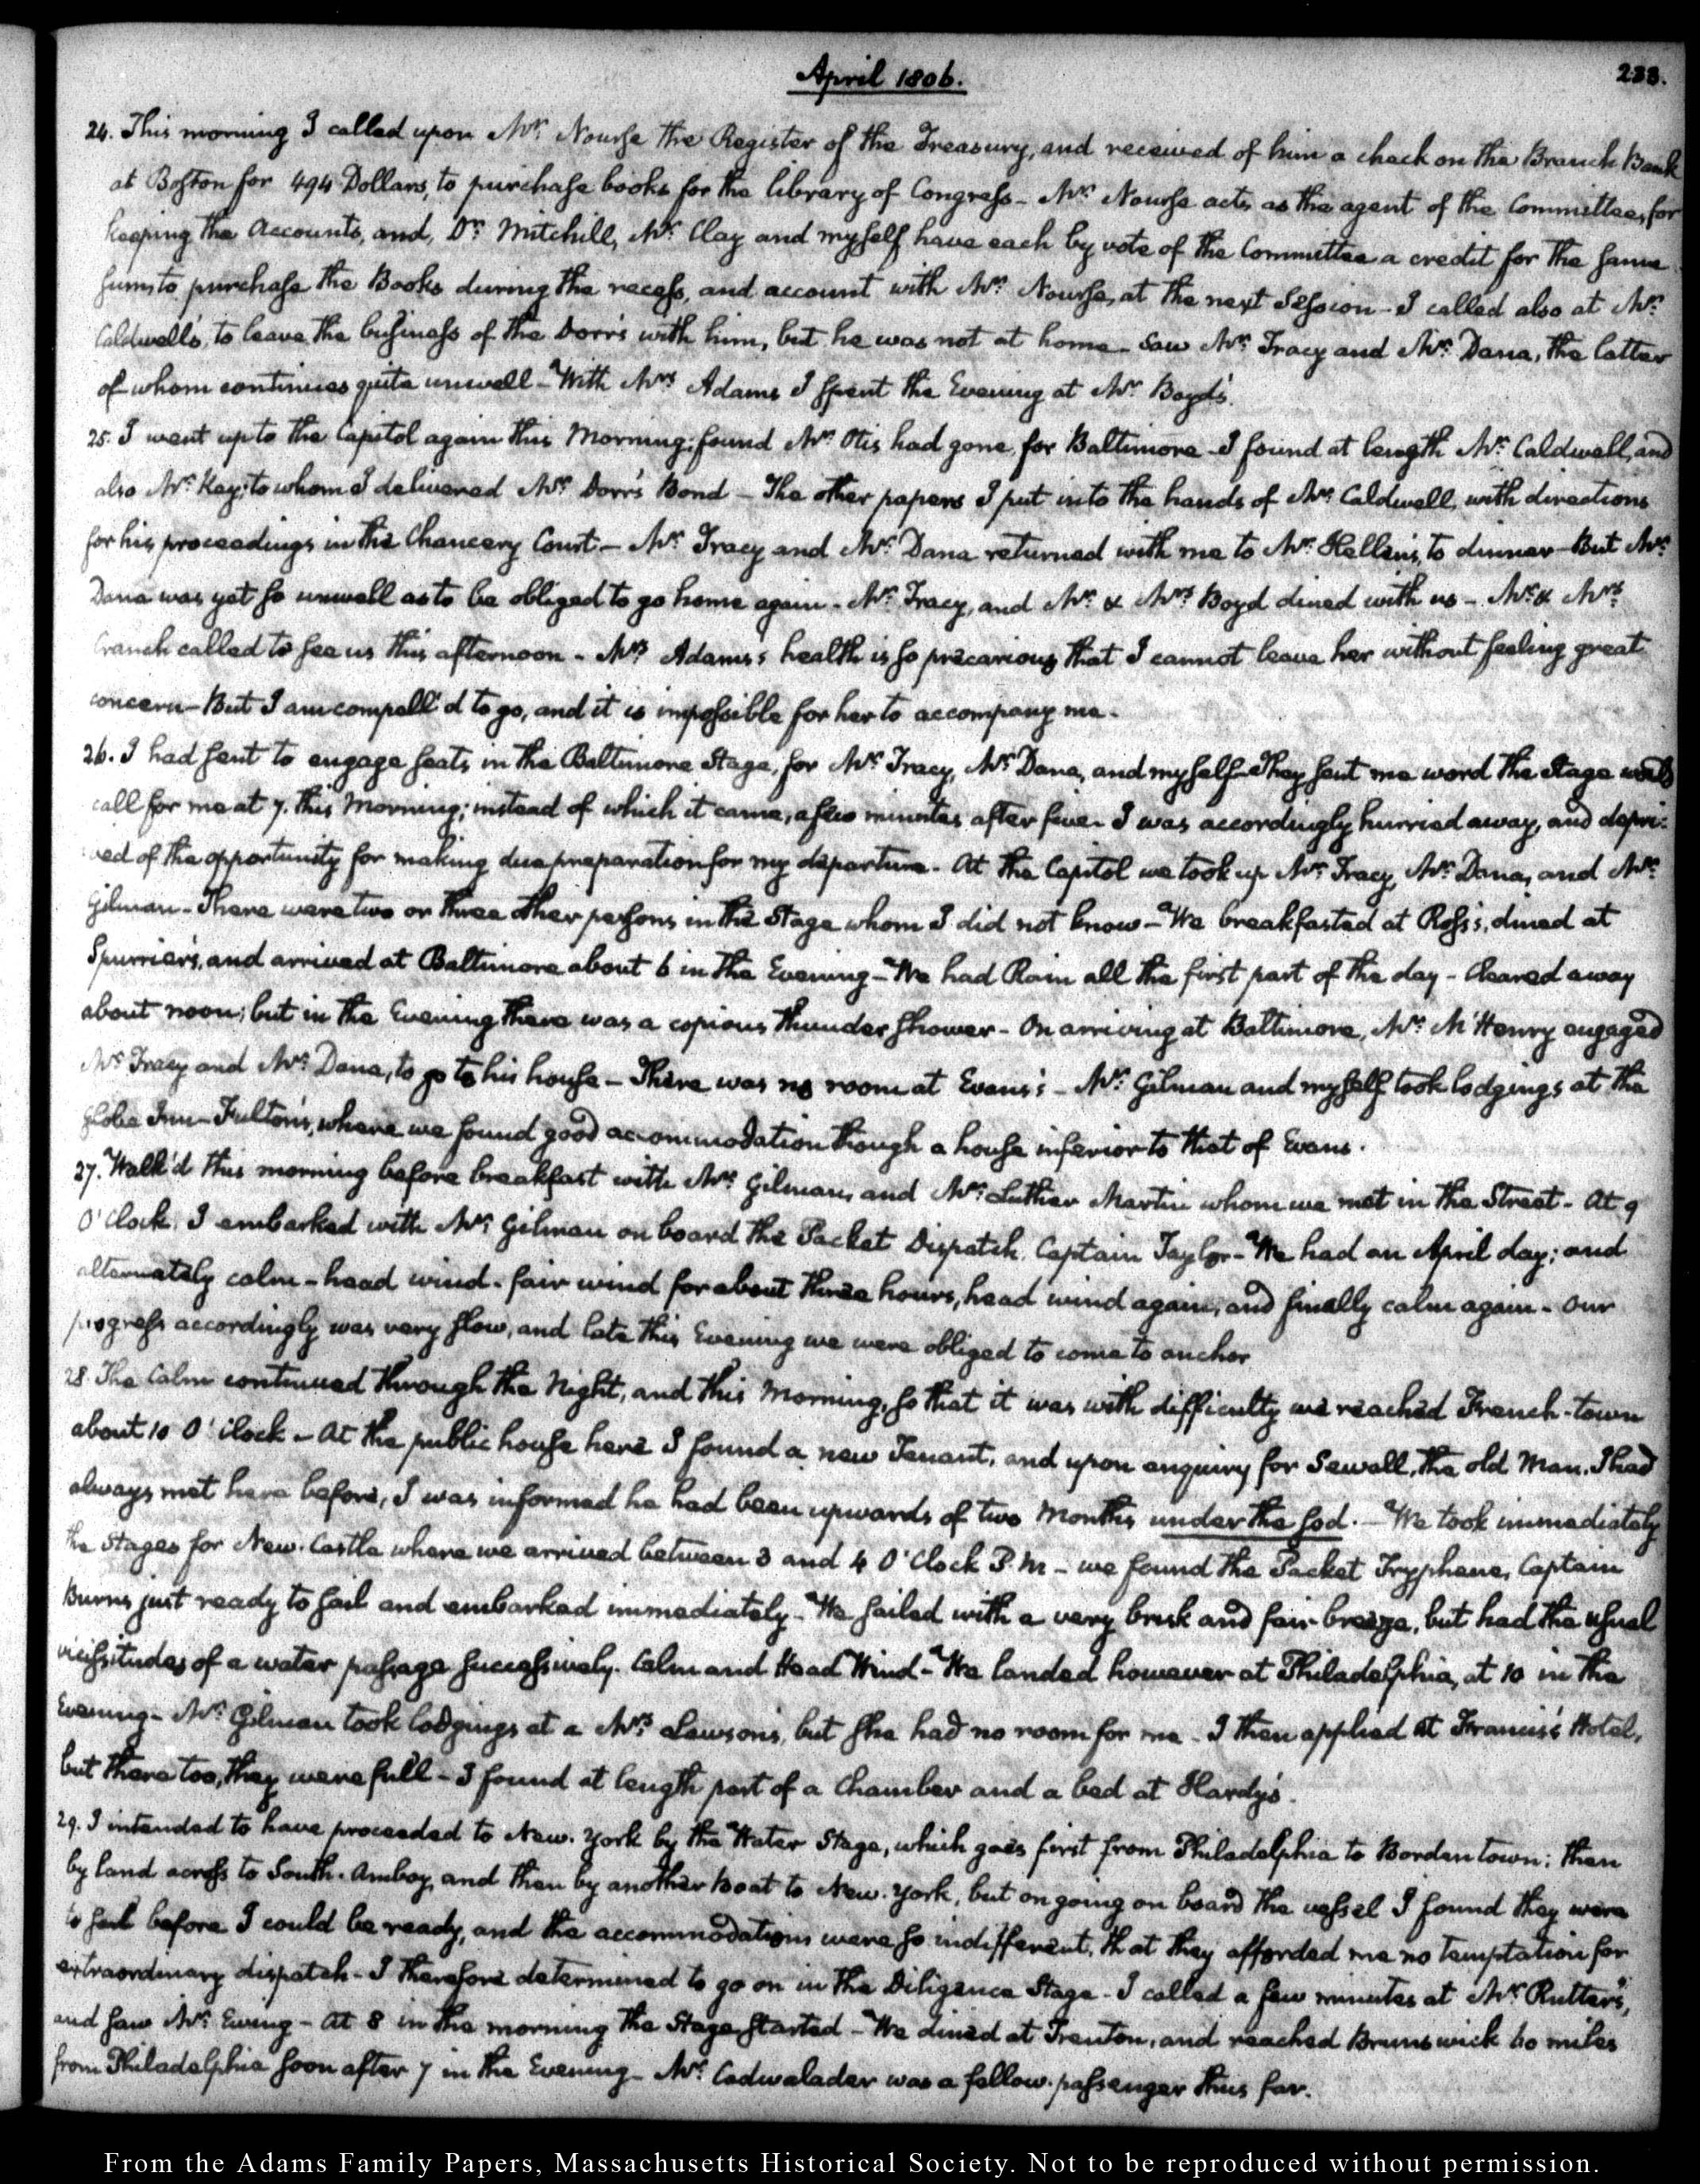 April 1806.
233.
24. This morning I called upon Mr. Nourse the Register of the Treasury, and received of him a check on the Branch Bank
at Boston for 494 Dollars, to purchase books for the library of Congress – Mr. Nourse acts as the agent of the Committee, for
keeping the Accounts, and, Dr. Mitchill, Mr. Clay and myself have each by vote of the Committee a credit for the same
sum, to purchase the Books during the recess, and account with Mr. Nourse, at the next Session – I called also at Mr.
Caldwell's, to leave the business of the Dorr's with him, but he was not at home – Saw Mr. Tracy and Mr. Dana, the latter
of whom continues quite unwell – With Mrs. Adams I spent the Evening at Mr. Boyd's.
25. I went up to the Capitol again this Morning; found Mr. Otis had gone for Baltimore – I found at length Mr. Caldwell, and
also Mr. Key; to whom I delivered Mr. Dorr's Bond – The other papers I put into the hands of Mr. Caldwell, with directions
for his proceedings in the Chancery Court – Mr. Tracy and Mr. Dana returned with me to Mr. Hellen's, to dinner – But Mr.
Dana was yet so unwell as to be obliged to go home again – Mr. Tracy, and Mr. & Mrs. Boyd dined with us – Mr. & Mrs.
Cranch called to see us this afternoon – Mrs. Adams's health is so precarious that I cannot leave her without feeling great
concern – But I am compell'd to go, and it is impossible for her to accompany me.
26. I had sent to engage seats in the Baltimore Stage, for Mr. Tracy, Mr. Dana, and myself – They sent me word the Stage would
call for me at 7. this Morning; instead of which it came, a few minutes after five – I was accordingly hurried away, and depri-
ved of the opportunity for making due preparation for my departure – At the Capitol we took up Mr. Tracy, Mr. Dana, and Mr.
Gilman – There were two or three other persons in the Stage whom I did not know – We breakfasted at Ross's, dined at
Spurrier's, and arrived at Baltimore about 6 in the Evening – We had Rain all the first part of the day – Cleared away
about noon; but in the Evening there was a copious thunder shower – On arriving at Baltimore, Mr. McHenry engaged
Mr. Tracy and Mr. Dana, to go to his house – There was no room at Evans's – Mr. Gilman and myself took lodgings at the
Globe Inn – Fulton's, where we found good accommodation though a house inferior to that of Evans.
27. Walk'd this morning before breakfast with Mr. Gilman, and Mr. Luther Martin whom we met in the Street – At 9
O'Clock, I embarked with Mr. Gilman on board the Packet Dispatch, Captain Taylor – We had an April day; and
alternately calm – head wind – fair wind for about three hours, head wind again, and finally calm again – Our
progress accordingly was very slow, and late this Evening we were obliged to come to anchor
28. The Calm continued through the Night, and this Morning, so that it was with difficulty we reached French-town
about 10 O'Clock – At the public house here I found a new Tenant, and upon enquiry for Sewall, the old Man, I had
always met here before, I was informed he had been upwards of two Months under the sod. – We took immediately
the Stages for New-Castle where we arrived between 3 and 4 O'Clock P.M – we found the Packet Tryphena, Captain
Burns just ready to sail and embarked immediately – We sailed with a very brisk and fair breeze, but had the usual
vicissitudes of a water passage successively. Calm and Head Wind – We landed however at Philadelphia, at 10 in the
Evening – Mr. Gilman took lodgings at a Mrs. Lawson's, but she had no room for me – I then applied at Francis's Hotel,
but there too, they were full – I found at length part of a chamber and a bed at Hardy's.
29. I intended to have proceeded to New-York by the Water Stage, which goes first from Philadelphia to Bordentown; then
by land across to South-Amboy, and then by another Boat to New-York, but on going on board the vessel I found they were
to sail before I could be ready, and the accommodations were so indifferent, that they afforded me no temptation for
extraordinary dispatch – I therefore determined to go on in the Diligence Stage – I called a few minutes at Mr. Rutter's,
and saw Mr. Ewing – At 8 in the morning the Stage started – We dined at Trenton, and reached Brunswick 60 miles
from Philadelphia soon after 7 in the Evening – Mr. Cadwalader was a fellow-passenger thus far.
From the Adams Family Papers, Massachusetts Historical Society. Not to be reproduced without permission.